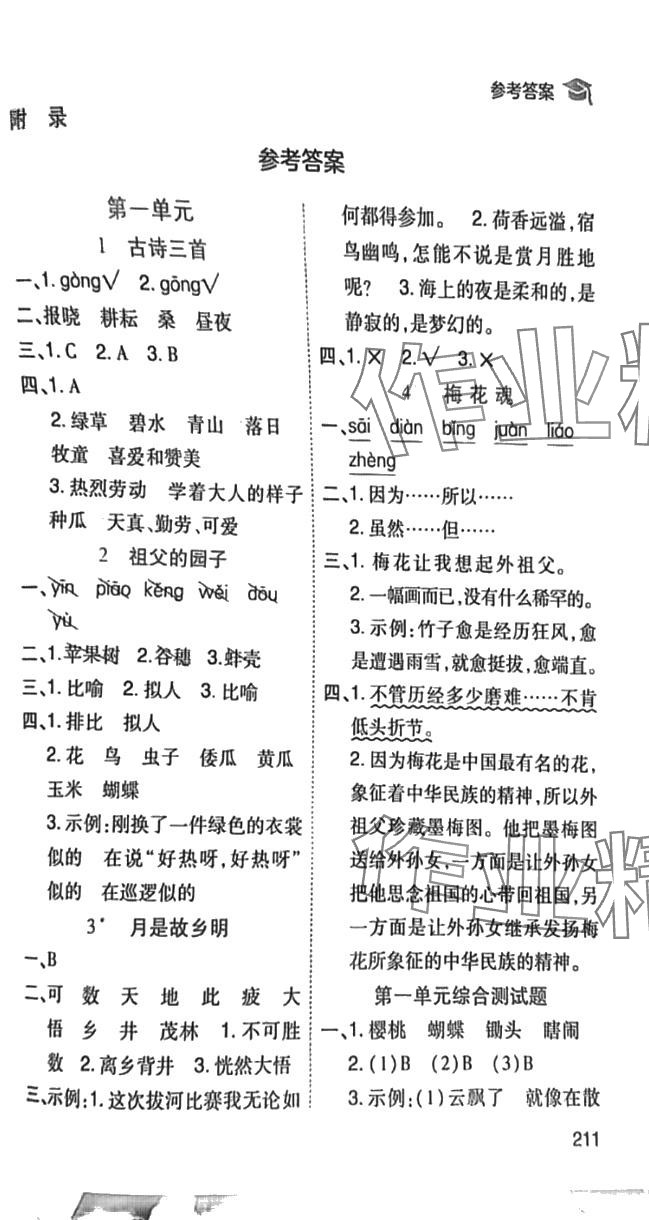 参考答案
附 录
参考答案
第一单元
1 古诗三首
一、1. gòng√ 2. gōng√
二、报晓 耕耘 桑 昼夜
三、1. C 2. A 3. B
四、1. A
2. 绿草 碧水 青山 落日
牧童 喜爱和赞美
3. 热烈劳动 学着大人的样子
种瓜 天真、勤劳、可爱
2 祖父的园子
一、yīn piāo kēng wěi dǒu
yù
二、1. 苹果树 2. 谷穗 3. 蚌壳
三、1. 比喻 2. 拟人 3. 比喻
四、1. 排比 拟人
2. 花 鸟 虫子 倭瓜 黄瓜
玉米 蝴蝶
3. 示例:刚换了一件绿色的衣裳
似的 在说“好热呀,好热呀”
似的 在巡逻似的
3* 月是故乡明
一、B
二、可 数 天 地 此 疲 大
悟 乡 井 茂林 1. 不可胜
数 2. 离乡背井 3. 恍然大悟
三、示例:1. 这次拔河比赛我无论如
何都得参加。 2. 荷香远溢,宿
鸟幽鸣,怎能不说是赏月胜地
呢? 3. 海上的夜是柔和的,是
静寂的,是梦幻的。
四、1. × 2. √ 3. ×
4 梅花魂
一、sāi diàn bīng juàn liáo
zhèng
二、1. 因为……所以……
2. 虽然……但……
三、1. 梅花让我想起外祖父。
2. 一幅画而已,没有什么稀罕的。
3. 示例:竹子愈是经历狂风,愈
是遭遇雨雪,就愈挺拔,愈端直。
四、1. 不管历经多少磨难……不肯
低头折节。
2. 因为梅花是中国最有名的花,
象征着中华民族的精神,所以外
祖父珍藏墨梅图。他把墨梅图
送给外孙女,一方面是让外孙女
把他思念祖国的心带回祖国,另
一方面是让外孙女继承发扬梅
花所象征的中华民族的精神。
第一单元综合测试题
一、1. 樱桃 蝴蝶 锄头 瞎闹
2. (1)B (2)B (3)B
3. 示例:(1)云飘了 就像在散
211
作业精
作业精